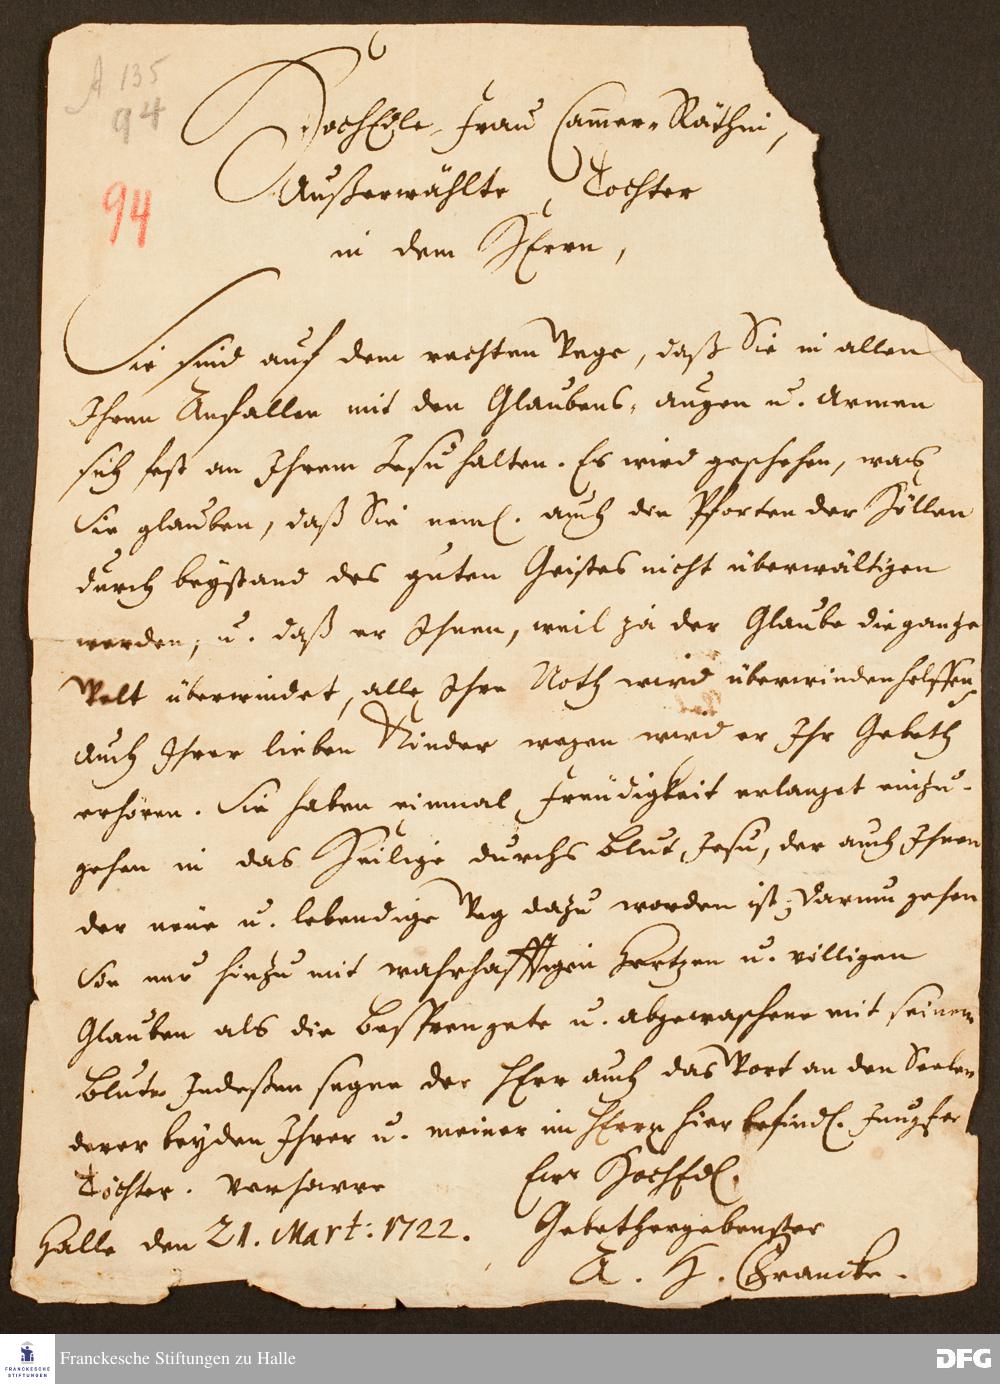 A 135
94
94
HochEdle Frau Cammer-Räthin,
Außerwählte Tochter
in dem HErrn,
Sie sind auf dem rechten Wege, daß Sie in allen
Ihren Anfällen mit den Glaubens-augen u. Armen
sich fest an Ihrem Jesu halten. Es wird geschehen, was
Sie glauben, daß Sie neml. auch die Pforten der Höllen
durch beystand des guten Geistes nicht überwältigen
werden, u. daß er Ihnen, weil ja der Glaube die gantze
Welt überwindet, alle Ihre Noth wird überwinden helffen,
Auch Ihrer lieben Kinder wegen wird er Ihr Gebeth
erhören. Sie haben einmal Freudigkeit erlanget einzu-
gehen in das Heilige durchs Blut Jesu, der auch Ihnen
der neue u. lebendige Weg dazu worden ist; Darum gehen
Sie nur hinzu mit wahrhafftigen Hertzen u. völligen
Glauben als die Besprengete u. abgewaschene mit seinem
Blute. Indeßen segne der HErr auch das Wort an den Seelen
derer beyden Ihrer u. meiner im HErrn hier befindl. Jungfer
Töchter. Verharre
Ew. HochEdl.
Halle den 21. Mart: 1722.
Gebethergebenster
A. H. Francke.
Franckesche Stiftungen zu Halle
FRANCKESCHE STIFTUNGEN
DFG